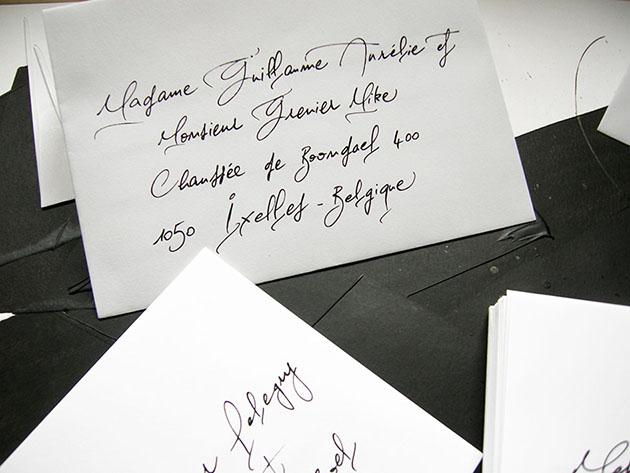 Madame Guillaume Aurélie et
Monsieur Grenier Mike
Chaussée de Boondael 400
1050 Ixelles - Belgique